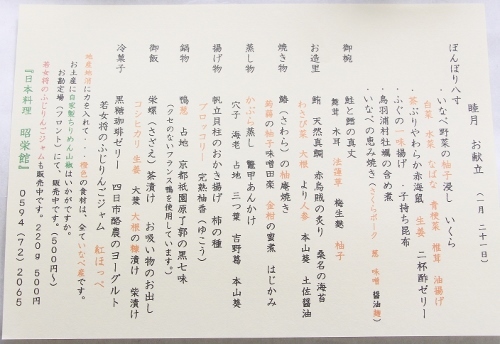 睦月　お献立　（一月　二十一日）
ぼんぼり八寸
・いなべ野菜の柚子浸し　いくら
白菜　水菜　なばな　青梗菜　椎茸　油揚げ
・茶ぶりやわらか赤海鼠　生姜　二杯酢ゼリー
・ふぐの一味揚げ　・子持ち昆布
・鳥羽浦村牡蠣の含め煮
・いなべの恵み焼き（さくらポーク　葱　味噌　醤油麹）
御椀　鮭と鱈の真丈
舞茸　木耳　法蓮草　梅生麩　柚子
お造里　鮪　天然真鯛　赤烏賊の炙り　桑名の海苔
わさび菜　大根　より人参　本山葵　土佐醤油
焼き物　鰆（さわら）の柚庵焼き
蒟蒻の柚子味噌田楽　金柑の蜜煮　はじかみ
蒸し物　かぶら蒸し　鼈甲あんかけ
穴子　海老　占地　三つ葉　吉野葛　本山葵
揚げ物　帆立貝柱のおかき揚げ　柿の種
ブロッコリー　完熟柚香（ゆこう）
鍋物　鴨葱　占地　京都祇園原了郭の黒七味
（クセのないフランス鴨を使用しています。）
御飯　栄螺（さざえ）茶漬け　お吸い物のお出し
コシヒカリ　生姜　大葉　大根の糠漬け　柴漬け
冷菓子　黒糖珈琲ゼリー　四日市酪農のヨーグルト
若女将のふじりんごジャム　紅ほっぺ
地産地消に力を入れて・・・橙色の食材は、全ていなべ産です。
お土産に自家製ちりめん山椒はいかがですか。
お勘定場（フロント）にて、販売中です。（500円～）
若女将のふじりんごジャムも販売中です。220g　500円
『日本料理　昭栄館』　0594（72）2065